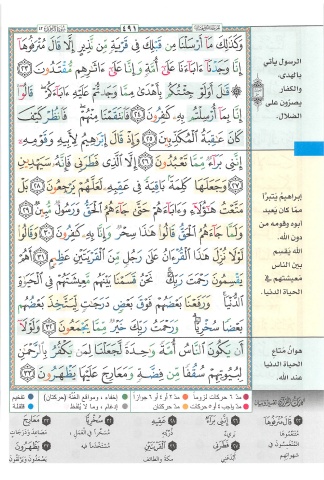 ٤٩١
وَكَذَٰلِكَ مَآ أَرْسَلْنَا مِن قَبْلِكَ فِى قَرْيَةٍ مِّن نَّذِيرٍ إِلَّا قَالَ مُتْرَفُوهَآ
إِنَّا وَجَدْنَآ ءَابَآءَنَا عَلَىٰٓ أُمَّةٍ وَإِنَّا عَلَىٰٓ ءَاثَٰرِهِم مُّقْتَدُونَ ٢٣
قَٰلَ أَوَلَوْ جِئْتُكُم بِأَهْدَىٰ مِمَّا وَجَدتُّمْ عَلَيْهِ ءَابَآءَكُمْ قَالُوٓا۟
إِنَّا بِمَآ أُرْسِلْتُم بِهِۦ كَٰفِرُونَ ٢٤ فَٱنتَقَمْنَا مِنْهُمْ فَٱنظُرْ كَيْفَ
كَانَ عَٰقِبَةُ ٱلْمُكَذِّبِينَ ٢٥ وَإِذْ قَالَ إِبْرَٰهِيمُ لِأَبِيهِ وَقَوْمِهِۦٓ
إِنَّنِى بَرَآءٌ مِّمَّا تَعْبُدُونَ ٢٦ إِلَّا ٱلَّذِى فَطَرَنِى فَإِنَّهُۥ سَيَهْدِينِ
٢٧ وَجَعَلَهَا كَلِمَةًۢ بَاقِيَةً فِى عَقِبِهِۦ لَعَلَّهُمْ يَرْجِعُونَ ٢٨ بَلْ
مَتَّعْتُ هَٰٓؤُلَآءِ وَءَابَآءَهُمْ حَتَّىٰ جَآءَهُمُ ٱلْحَقُّ وَرَسُولٌ مُّبِينٌ ٢٩
وَلَمَّا جَآءَهُمُ ٱلْحَقُّ قَالُوا۟ هَٰذَا سِحْرٌ وَإِنَّا بِهِۦ كَٰفِرُونَ ٣٠ وَقَالُوا۟
لَوْلَا نُزِّلَ هَٰذَا ٱلْقُرْءَانُ عَلَىٰ رَجُلٍ مِّنَ ٱلْقَرْيَتَيْنِ عَظِيمٍ ٣١ أَهُمْ
يَقْسِمُونَ رَحْمَتَ رَبِّكَ نَحْنُ قَسَمْنَا بَيْنَهُم مَّعِيشَتَهُمْ فِى ٱلْحَيَوٰةِ
ٱلدُّنْيَا وَرَفَعْنَا بَعْضَهُمْ فَوْقَ بَعْضٍ دَرَجَٰتٍ لِّيَتَّخِذَ بَعْضُهُم
بَعْضًا سُخْرِيًّا وَرَحْمَتُ رَبِّكَ خَيْرٌ مِّمَّا يَجْمَعُونَ ٣٢ وَلَوْلَآ
أَن يَكُونَ ٱلنَّاسُ أُمَّةً وَٰحِدَةً لَّجَعَلْنَا لِمَن يَكْفُرُ بِٱلرَّحْمَٰنِ
لِبُيُوتِهِمْ سُقُفًا مِّن فِضَّةٍ وَمَعَارِجَ عَلَيْهَا يَظْهَرُونَ ٣٣
الرسول يأتي
بالهدى،
والكفار
يصرون على
الضلال.
إبراهيم يتبرأ
مما كان يعبد
أبوه وقومه من
دون الله.
الله يقسم
بين الناس
معيشتهم في
الحياة الدنيا.
هوان متاع
الحياة الدنيا
عند الله.
مد ٦ حركات لزوماً
مد ٢ أو ٤ أو ٦ جوازاً
إخفاء، ومواقع الغنة (حركتان)
تفخيم
مد واجب ٤ أو ٥ حركات
مد حركتان
إدغام، وما لا يلفظ
قلقلة